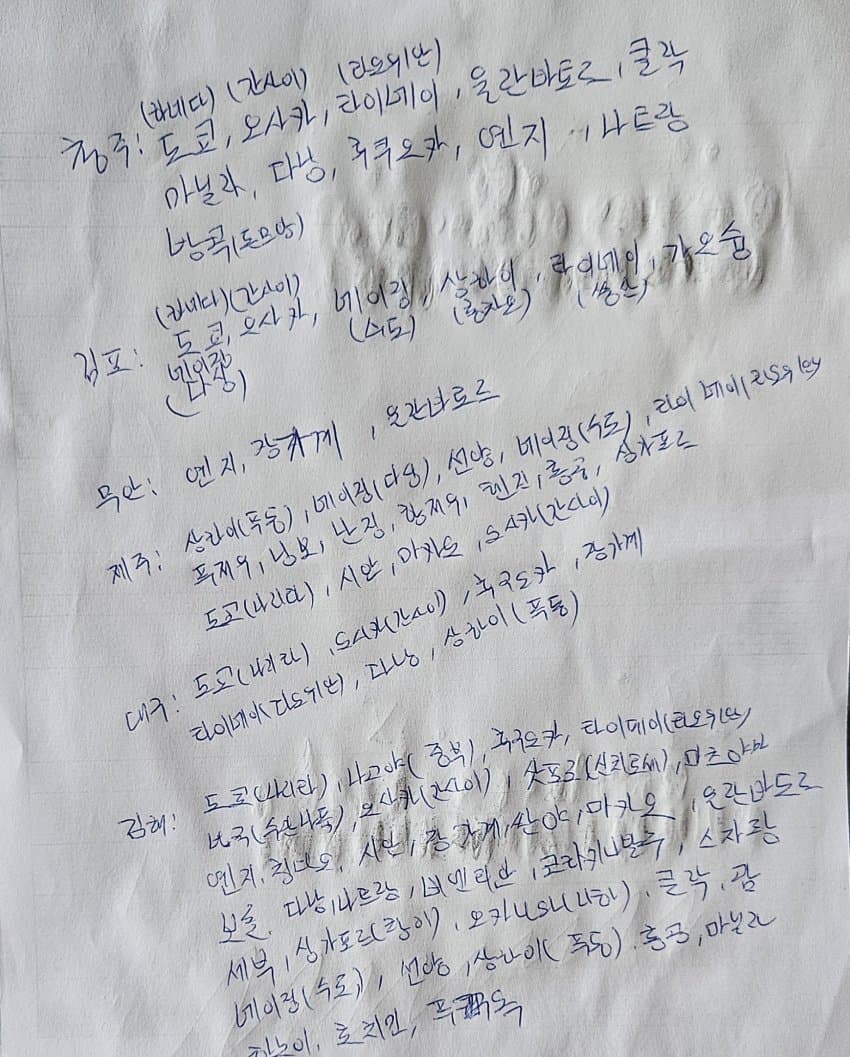 (하네다) (간사이) (타오위안)
청주: 도쿄, 오사카, 타이베이, 울란바토르, 클락
마닐라, 다낭, 후쿠오카, 연지, 나트랑
방콕(돈므앙)
(하네다)(간사이)
김포: 도쿄, 오사카, 베이징, 상하이, 타이베이, 가오슝
(수도) (홍차오) (쑹산)
베이징
(다싱)
무안: 연지, 장가계, 울란바토르
제주: 상하이(푸동), 베이징(다싱), 선양, 베이징(수도), 타이베이(타오위안)
푸저우, 닝보, 난징, 항저우, 톈진, 홍콩, 싱가포르
도쿄(나리타), 시안, 마카오, 오사카(간사이)
대구: 도쿄(나리타), 오사카(간사이), 후쿠오카, 장가계
타이베이(타오위안), 다낭, 상하이(푸동)
김해: 도쿄(나리타), 나고야(중부), 후쿠오카, 타이베이(타오위안)
방콕(수완나품), 오사카(간사이), 삿포로(신치토세), 마츠야마
연지, 칭다오, 시안, 장가계, 싼야, 마카오, 울란바토르
보홀, 다낭, 나트랑, 비엔티안, 코타키나발루, 스자좡
세부, 싱가포르(창이), 오키나와(나하), 클락, 괌
베이징(수도), 선양, 상하이(푸동), 홍콩, 마닐라
하노이, 호치민, 푸꾸옥